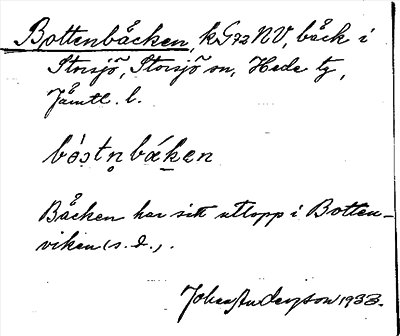 Bottenbäcken, kG72NV, bäck i
Storsjö, Storsjö sn, Hede tg,
Jämtl. l.
bȯ́stn̥bǽken
Bäcken har sitt utlopp i Botten-
viken (s. d.).
Johan Anderzson 1933.